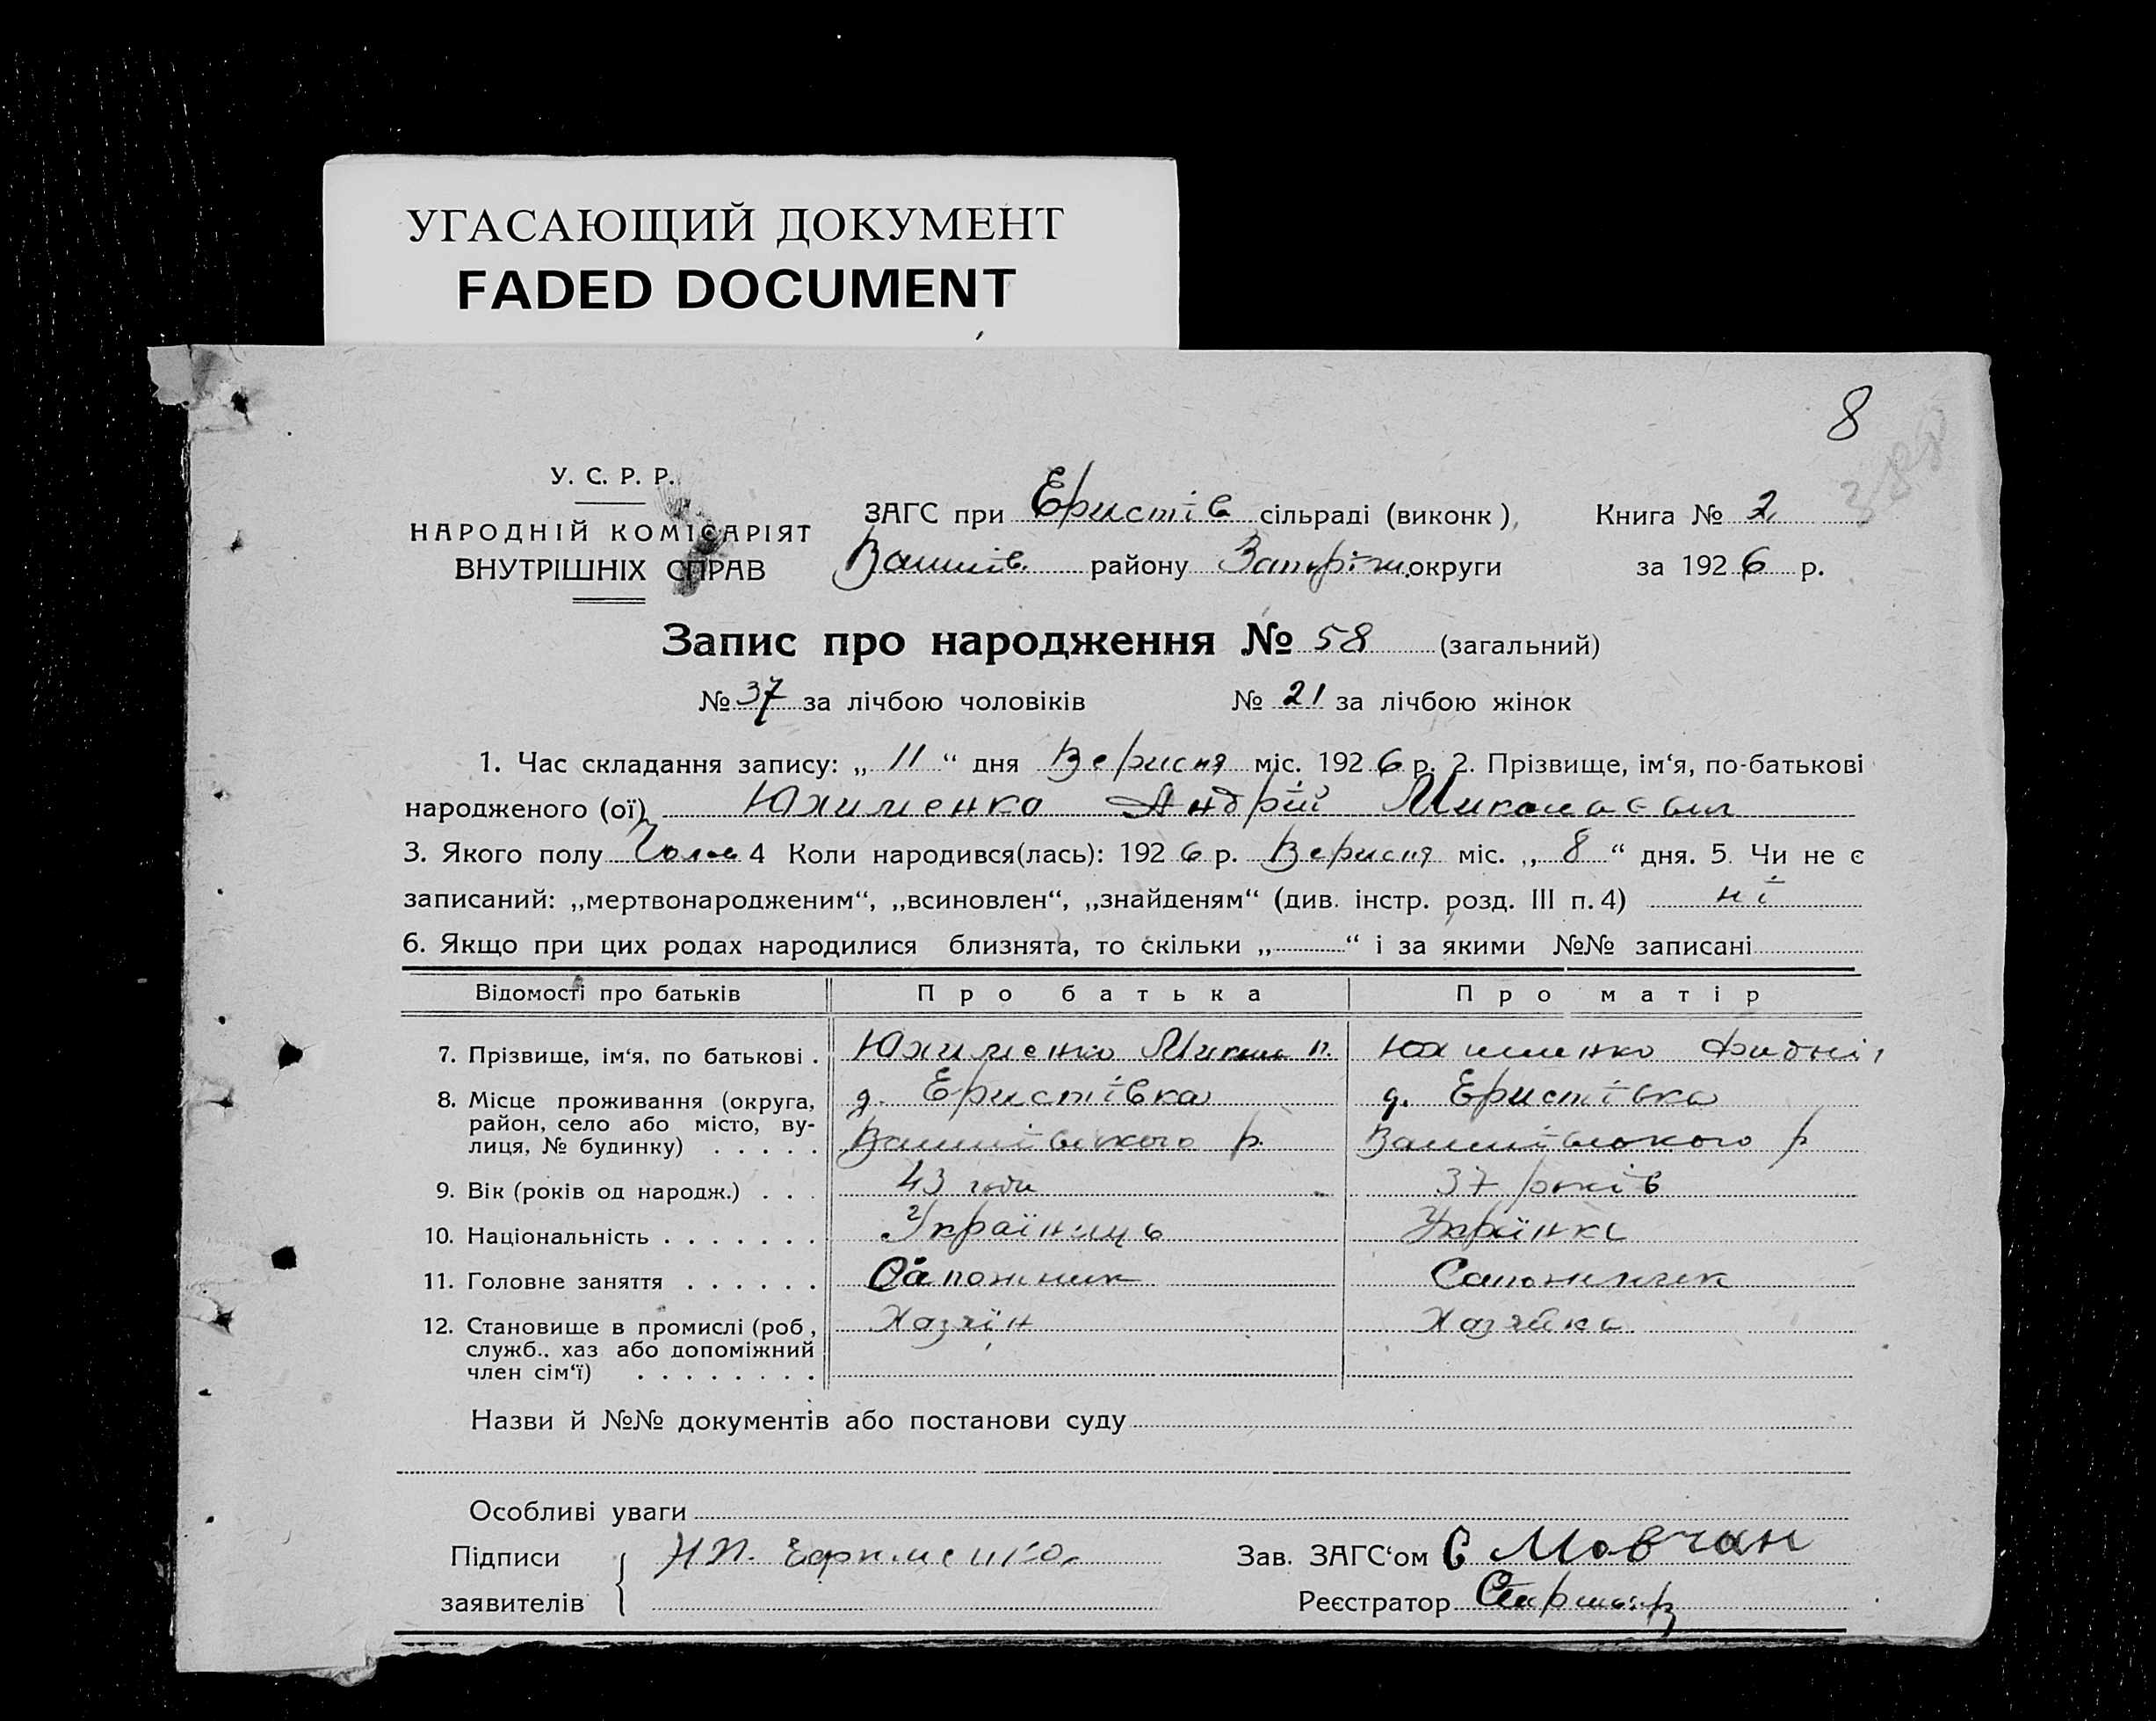 УГАСАЮЩИЙ ДОКУМЕНТ
FADED DOCUMENT
8
388
У. С. Р. Р.
НАРОДНІЙ КОМІСАРІЯТ
ВНУТРІШНІХ СПРАВ
ЗАГС при Еристів сільраді (виконк),
району Запоріж. округи
Книга № 2
за 1926 р.
Запис про народження № 58 (загальний)
№ 37 за лічбою чоловіків № 21 за лічбою жінок
1. Час складання запису: „ 11 “ дня Вересня міс. 1926 р. 2. Прізвище, ім‘я, по-батькові
народженого (ої) Юхименко Андрій Миколаєвич
3. Якого полу Чолов 4 Коли народився(лась): 1926 р. Вересня міс. „ 8 “ дня. 5. Чи не є
записаний: „мертвонародженим“, „всиновлен“, „знайденям“ (див. інстр. розд. III п. 4) ні
6. Якщо при цих родах народилися близнята, то скільки „ “ і за якими №№ записані
Відомості про батьків Про батька Про матір
7. Прізвище, ім‘я, по батькові . Юхименко Микол п. Юхименко
8. Місце проживання (округа, д. Еристівка д. Еристівка
район, село або місто, ву-
лиця, № будинку) . . . . . р. р
9. Вік (років од народж.) . . . 43 годи 37 років
10. Національність . . . . . . . Українець Українка
11. Головне заняття . . . . . . Сапожник Сапожник
12. Становище в промислі (роб, Хазяїн Хазяйка
служб., хаз або допоміжний
член сім‘ї) . . . . . . . .
Назви й №№ документів або постанови суду
Особливі уваги
Підписи Н П. Ефименко
заявителів
Зав. ЗАГС‘ом С Мовчан
Реєстратор